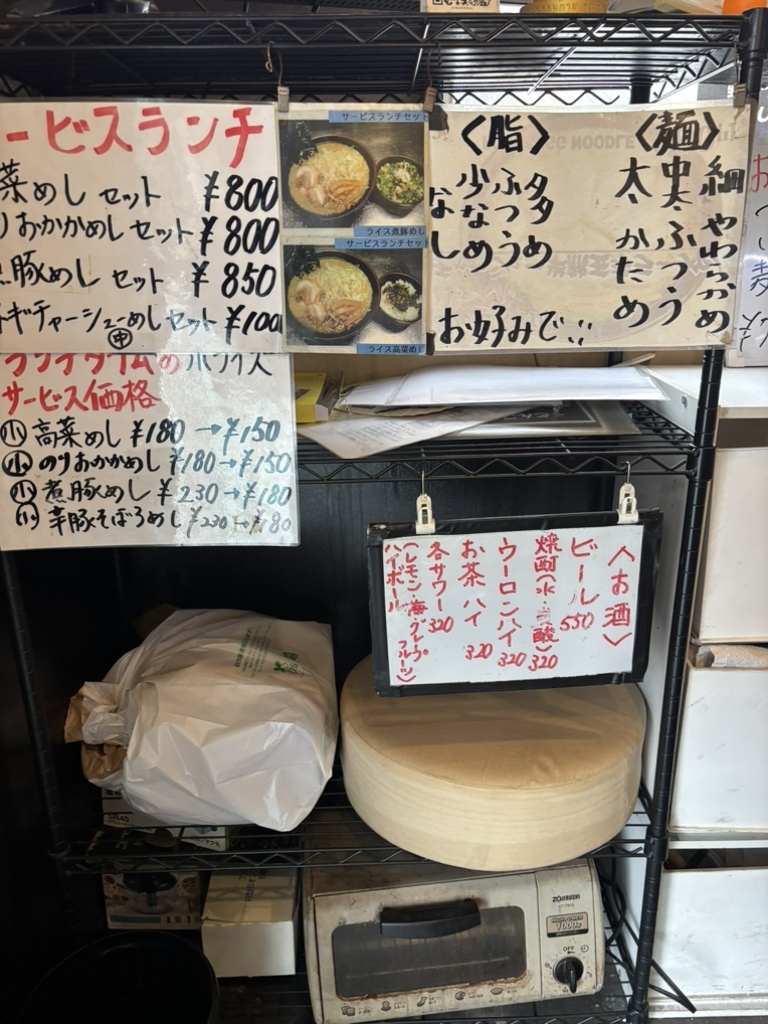 ービスランチ
菜めし セット ¥800
りおかかめし セット ¥800
豚めし セット ¥850
ネギチャーシューめし セット ¥100
サービスランチセット
ライス煮豚めし
サービスランチセット
ライス高菜めし
〈脂〉
多め
ふつう
少なめ
なし
〈麺〉
細
中太・
太・
やわらかめ
ふつう
かため
お好みで
ランチタイムの
サービス価格
小 高菜めし ¥180 → ¥150
小 のりおかかめし ¥180 → ¥150
小 煮豚めし ¥230 → ¥180
小 辛豚そぼろめし ¥230 → ¥180
〈お酒〉
ビール 550
焼酎(水・炭酸) 320
ウーロンハイ 320
お茶ハイ 320
各サワー 320
(レモン・梅・グレープフルーツ)
ハイボール
ZOJIRUSHI
1000W
OFF